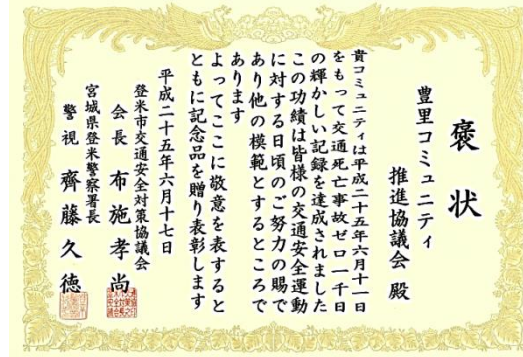 褒状
豊里コミュニティ
推進協議会 殿
貴コミュニティは平成二十五年六月十一日
をもって交通死亡事故ゼロ一千日
の輝かしい記録を達成されました
この功績は皆様の交通安全運動
に対する日頃のご努力の賜で
あり他の模範とするところで
あります
よってここに敬意を表すると
ともに記念品を贈り表彰します
平成二十五年六月十七日
登米市交通安全対策協議会
会長 布施孝尚
宮城県登米警察署長
警視 齊藤久徳